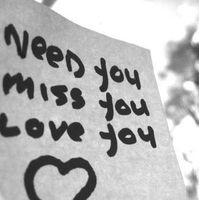 Need you
miss you
Love you